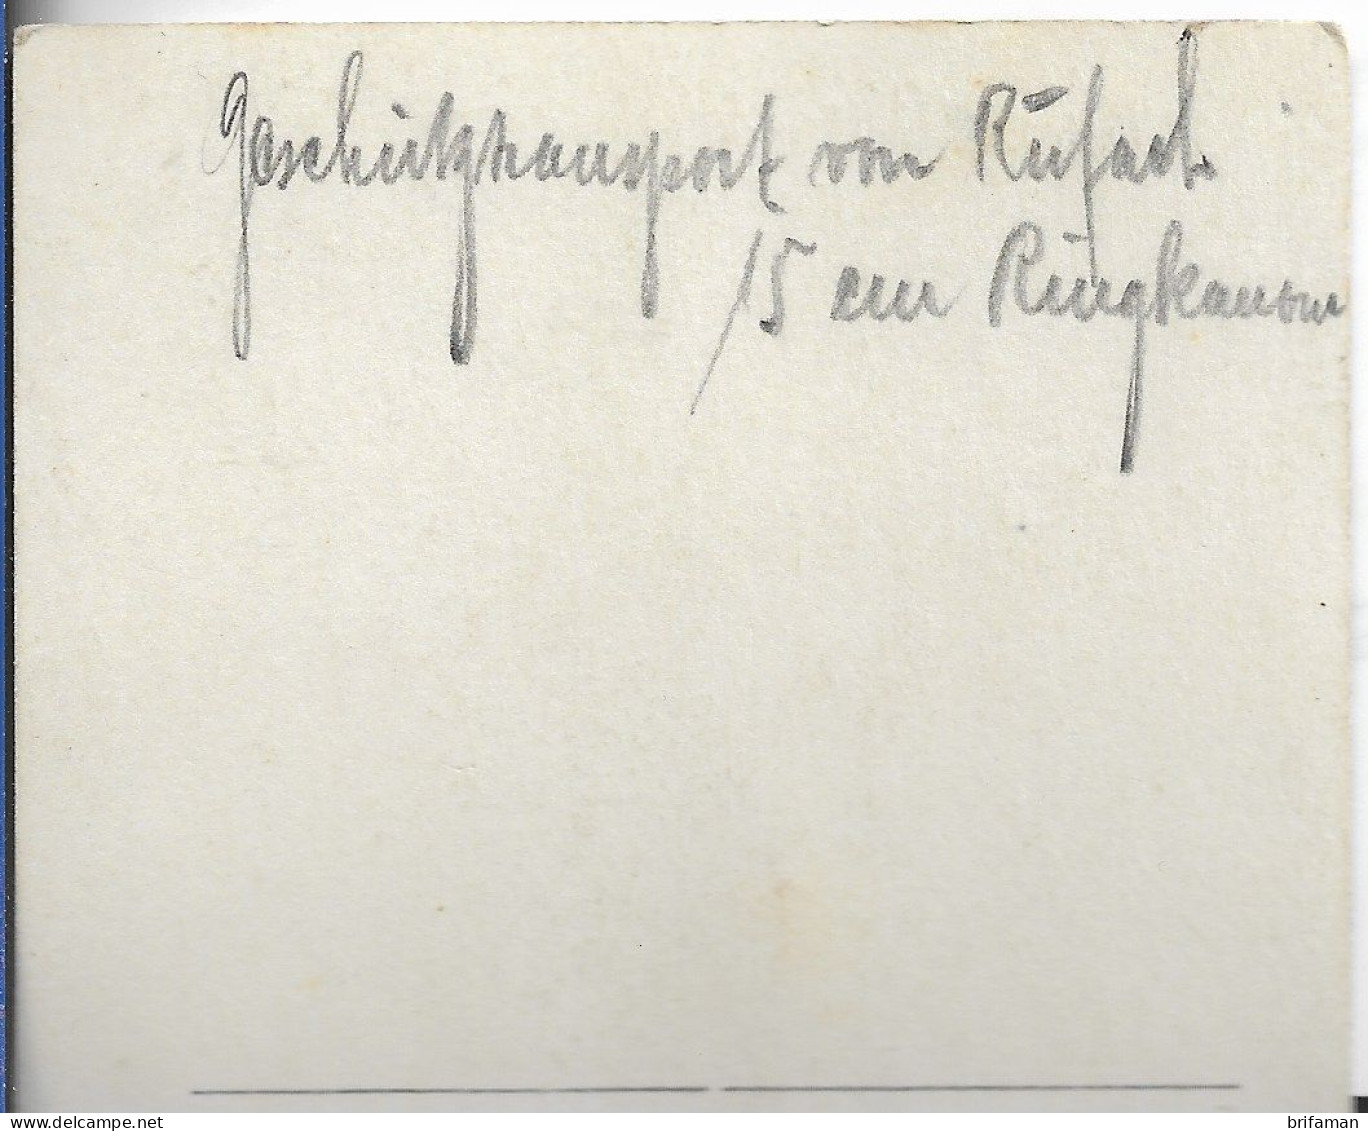 Geschütztransport von Rufach
15 cm Ringkanone
brifaman
delcampe.net